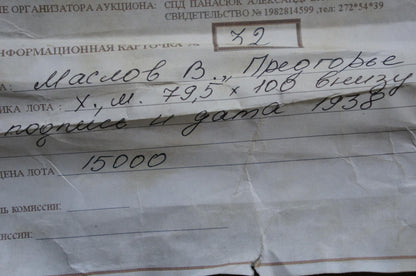 ИЕ ОРГАНИЗАТОРА АУКЦИОНА: СПД ПАНАСЮК АЛЕКСАНДР
СВИДЕТЕЛЬСТВО № 1982814599 ,тел: 272*54*39
НФОРМАЦИОННАЯ КАРТОЧКА №
32
А : Маслов В., Предгорье
ИКА ЛОТА : Х., м. 79,5 х 100 внизу
подпись и дата 1938
ЦЕНА ЛОТА 15000
ЛЬ КОМИССИИ:
МИССИИ: